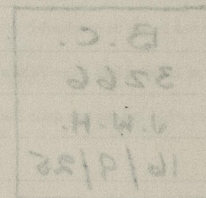 B.C.
3266
J.W.H.
16/9/25